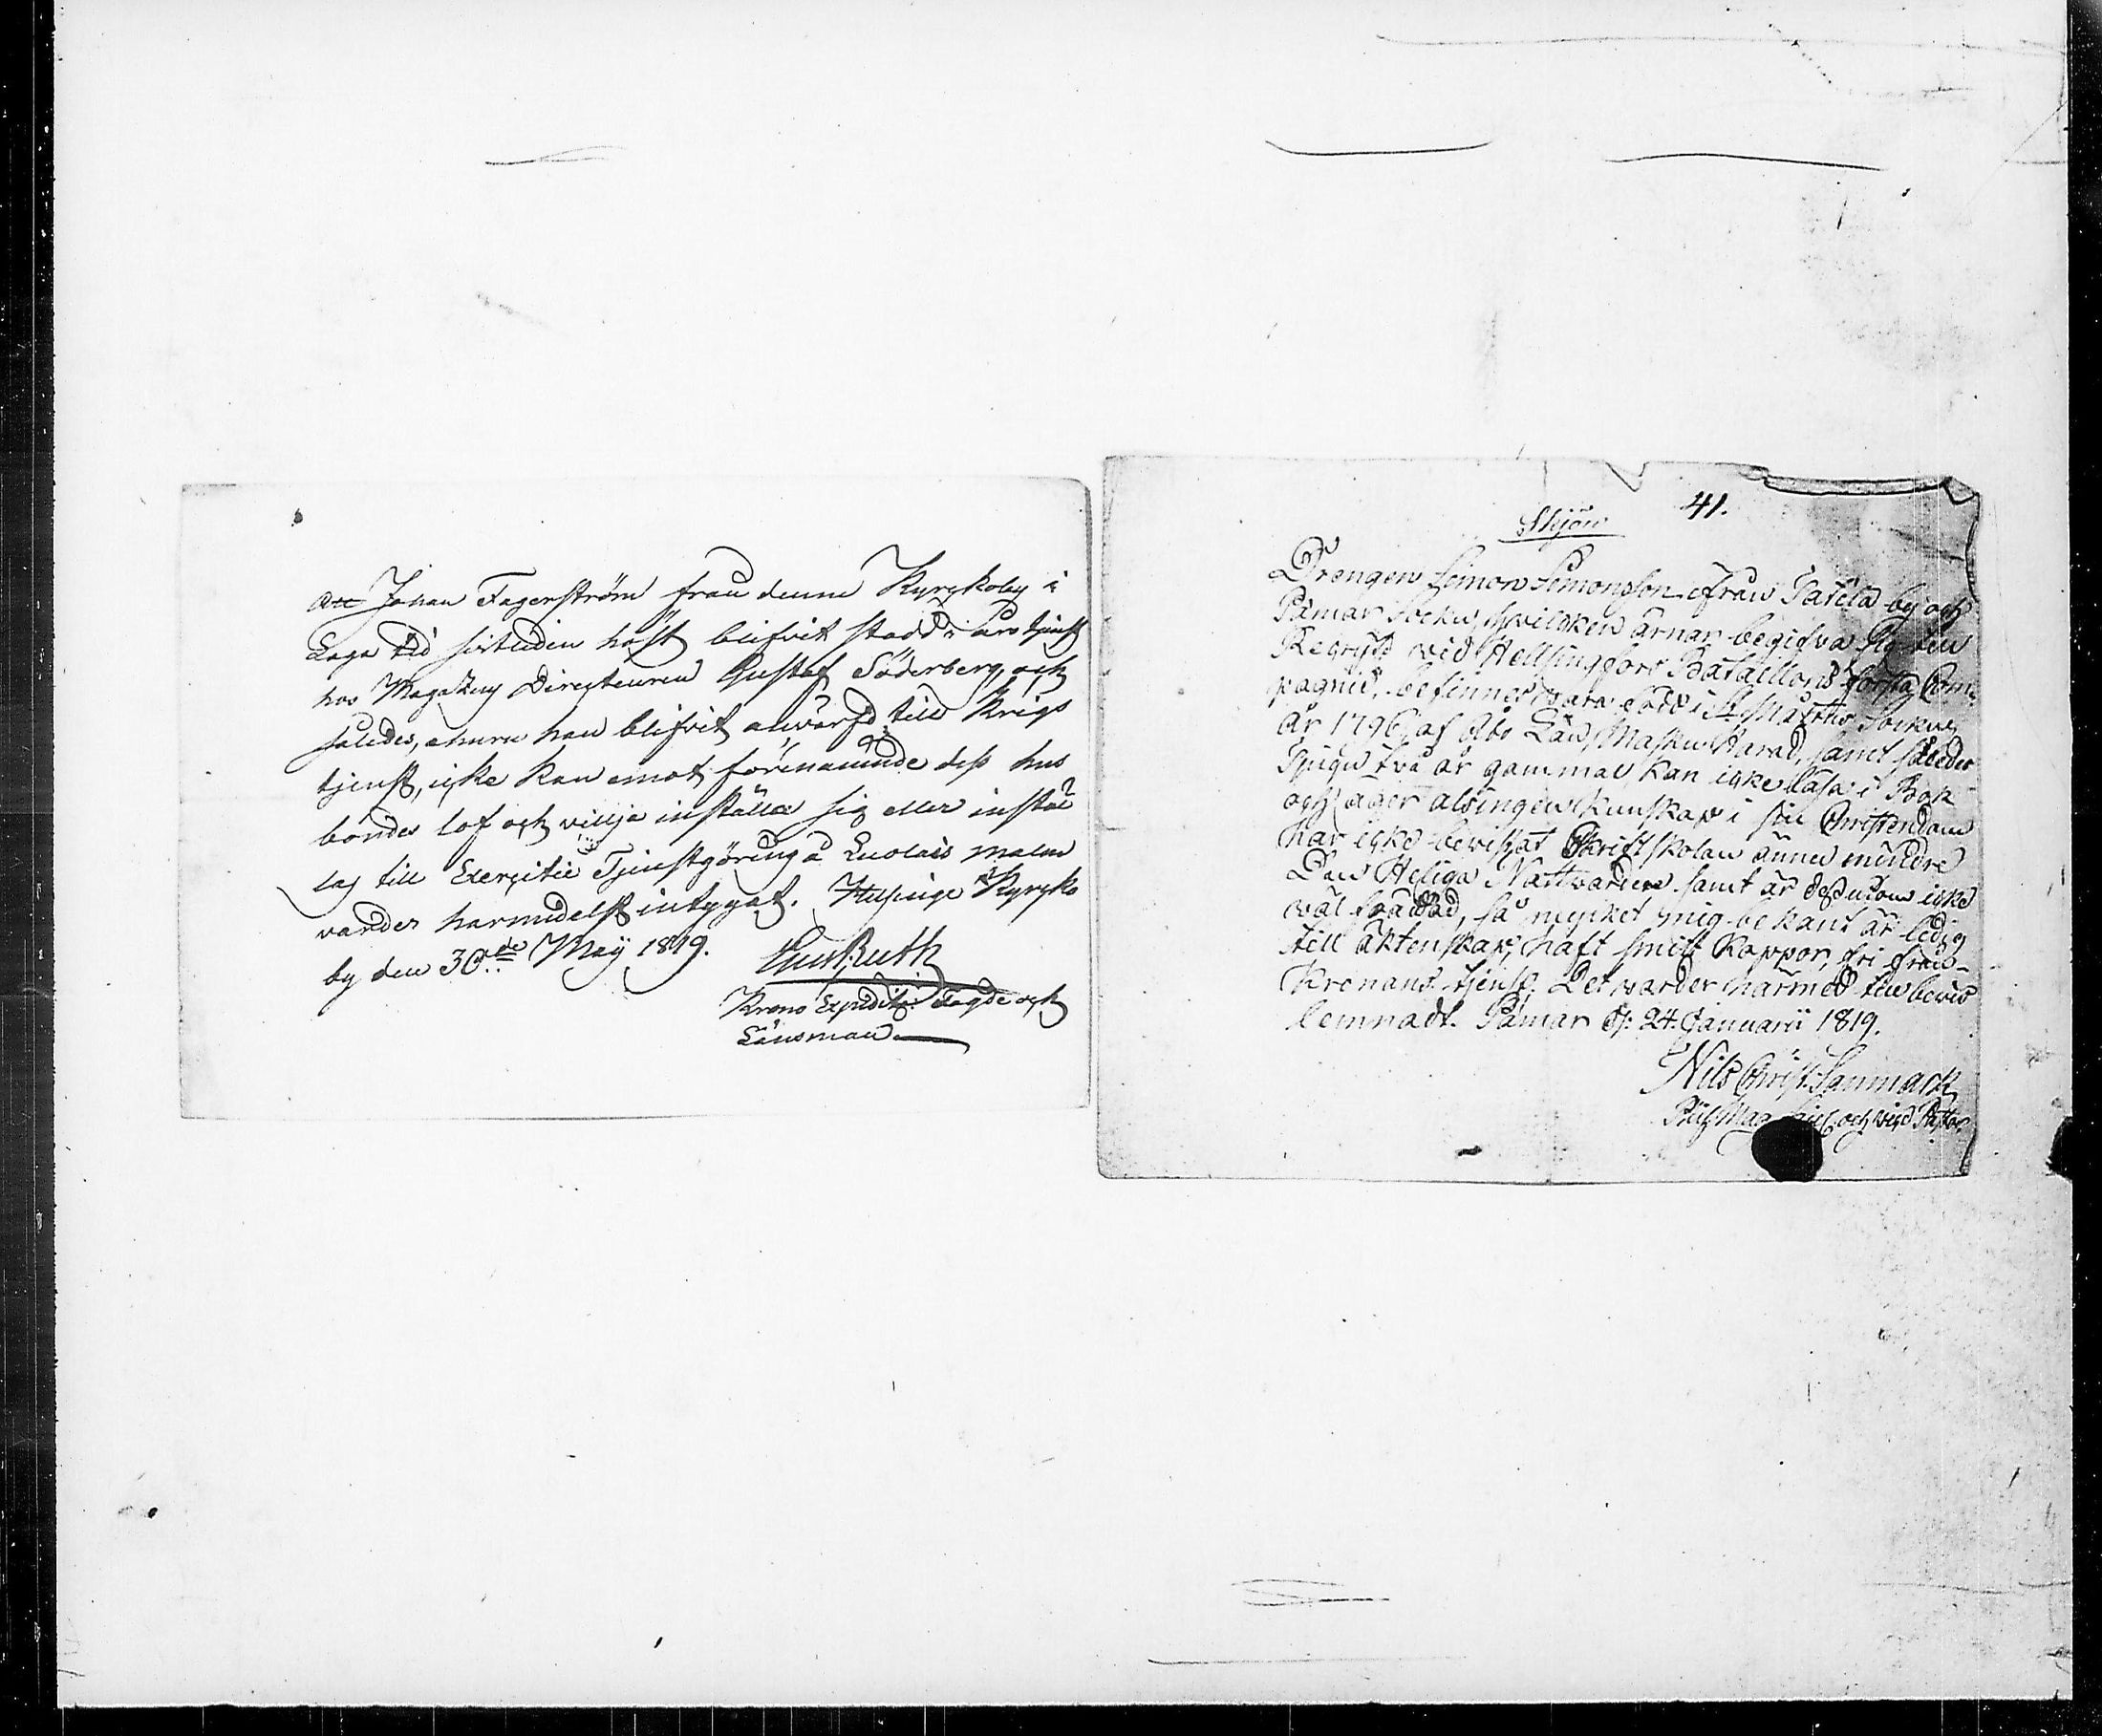 att Johan Fagerström från denne Kyrkoby i
Laga tid sistleden höst blifvit stadd i års tjenst
hos Magazins Directeuren Gustaf Söderberg, och
således, ehuru han blifvit anvärfd till Krigs
tjenst, icke kan emot förenämnde dess hus
bondes lof och villja inställa sig eller instäl
las till Exercitie Tjenstgöring å Luolais malm
varder härmedelst intygat. Kyrko
by den 30de Maij 1819.
Gust Ruth
Krono Expeditions Fogde och
Länsman
41.
Drengen Simon Simonsson ifrån Tattila by och
Pämar Sockn, hvilcken ärnar begifva sig till
Recryt vid Hellsingfors Bataillons första Com-
pagnie, befinnes vara född i St Mårtens Sockn
år 1796, af Åbo Län, Masku Härad, samt således
Tjugu två år gammal, kan icke läsa i Bok
och äger alsingen kunskap i sin Christendom
har icke bevistat Skriftskolan ännu mindre
Den Heliga Nattvarden samt är dessutom icke
väl frägdad, så mycket mig bekant är ledig
till äktenskap, haft små Kappor, fri från
Kronans tjenst. Det varder härmed till bevis
lemnadt. Pämar d. 24 Januarii 1819.
Nils Christ. Sanmark
och vice Pastor